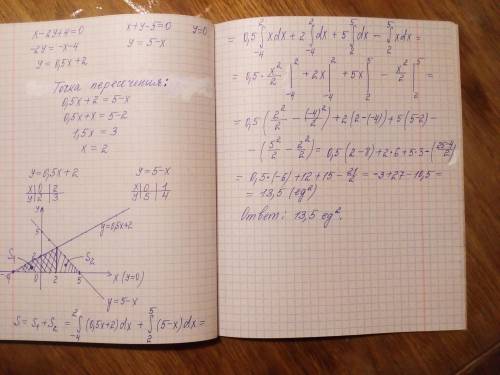 x-2y+4=0 x+y-5=0 y=0
-2y=-x-4 y=5-x
y=0,5x+2
Точка пересечения:
0,5x+2=5-x
0,5x+x=5-2
1,5x=3
x=2
y=0,5x+2 y=5-x
x|0|2 x|0|1
y|2|3 y|5|4
y
5
y=0,5x+2
S₁ S₂
-4 0 2 5 x (y=0)
y=5-x
S=S₁+S₂=∫₋₄²(0,5x+2)dx+∫₂⁵(5-x)dx=
=0,5∫₋₄²xdx+2∫₋₄²dx+5∫₂⁵dx-∫₂⁵xdx=
=0,5·x²/2|₋₄²+2x|₋₄²+5x|₂⁵-x²/2|₂⁵=
=0,5(2²/2-(-4)²/2)+2(2-(-4))+5(5-2)-
-(5²/2-2²/2)=0,5(2-8)+2·6+5·3-(25-4/2)
=0,5·(-6)+12+15-21/2=-3+27-10,5=
=13,5 (ед²)
Ответ: 13,5 ед².